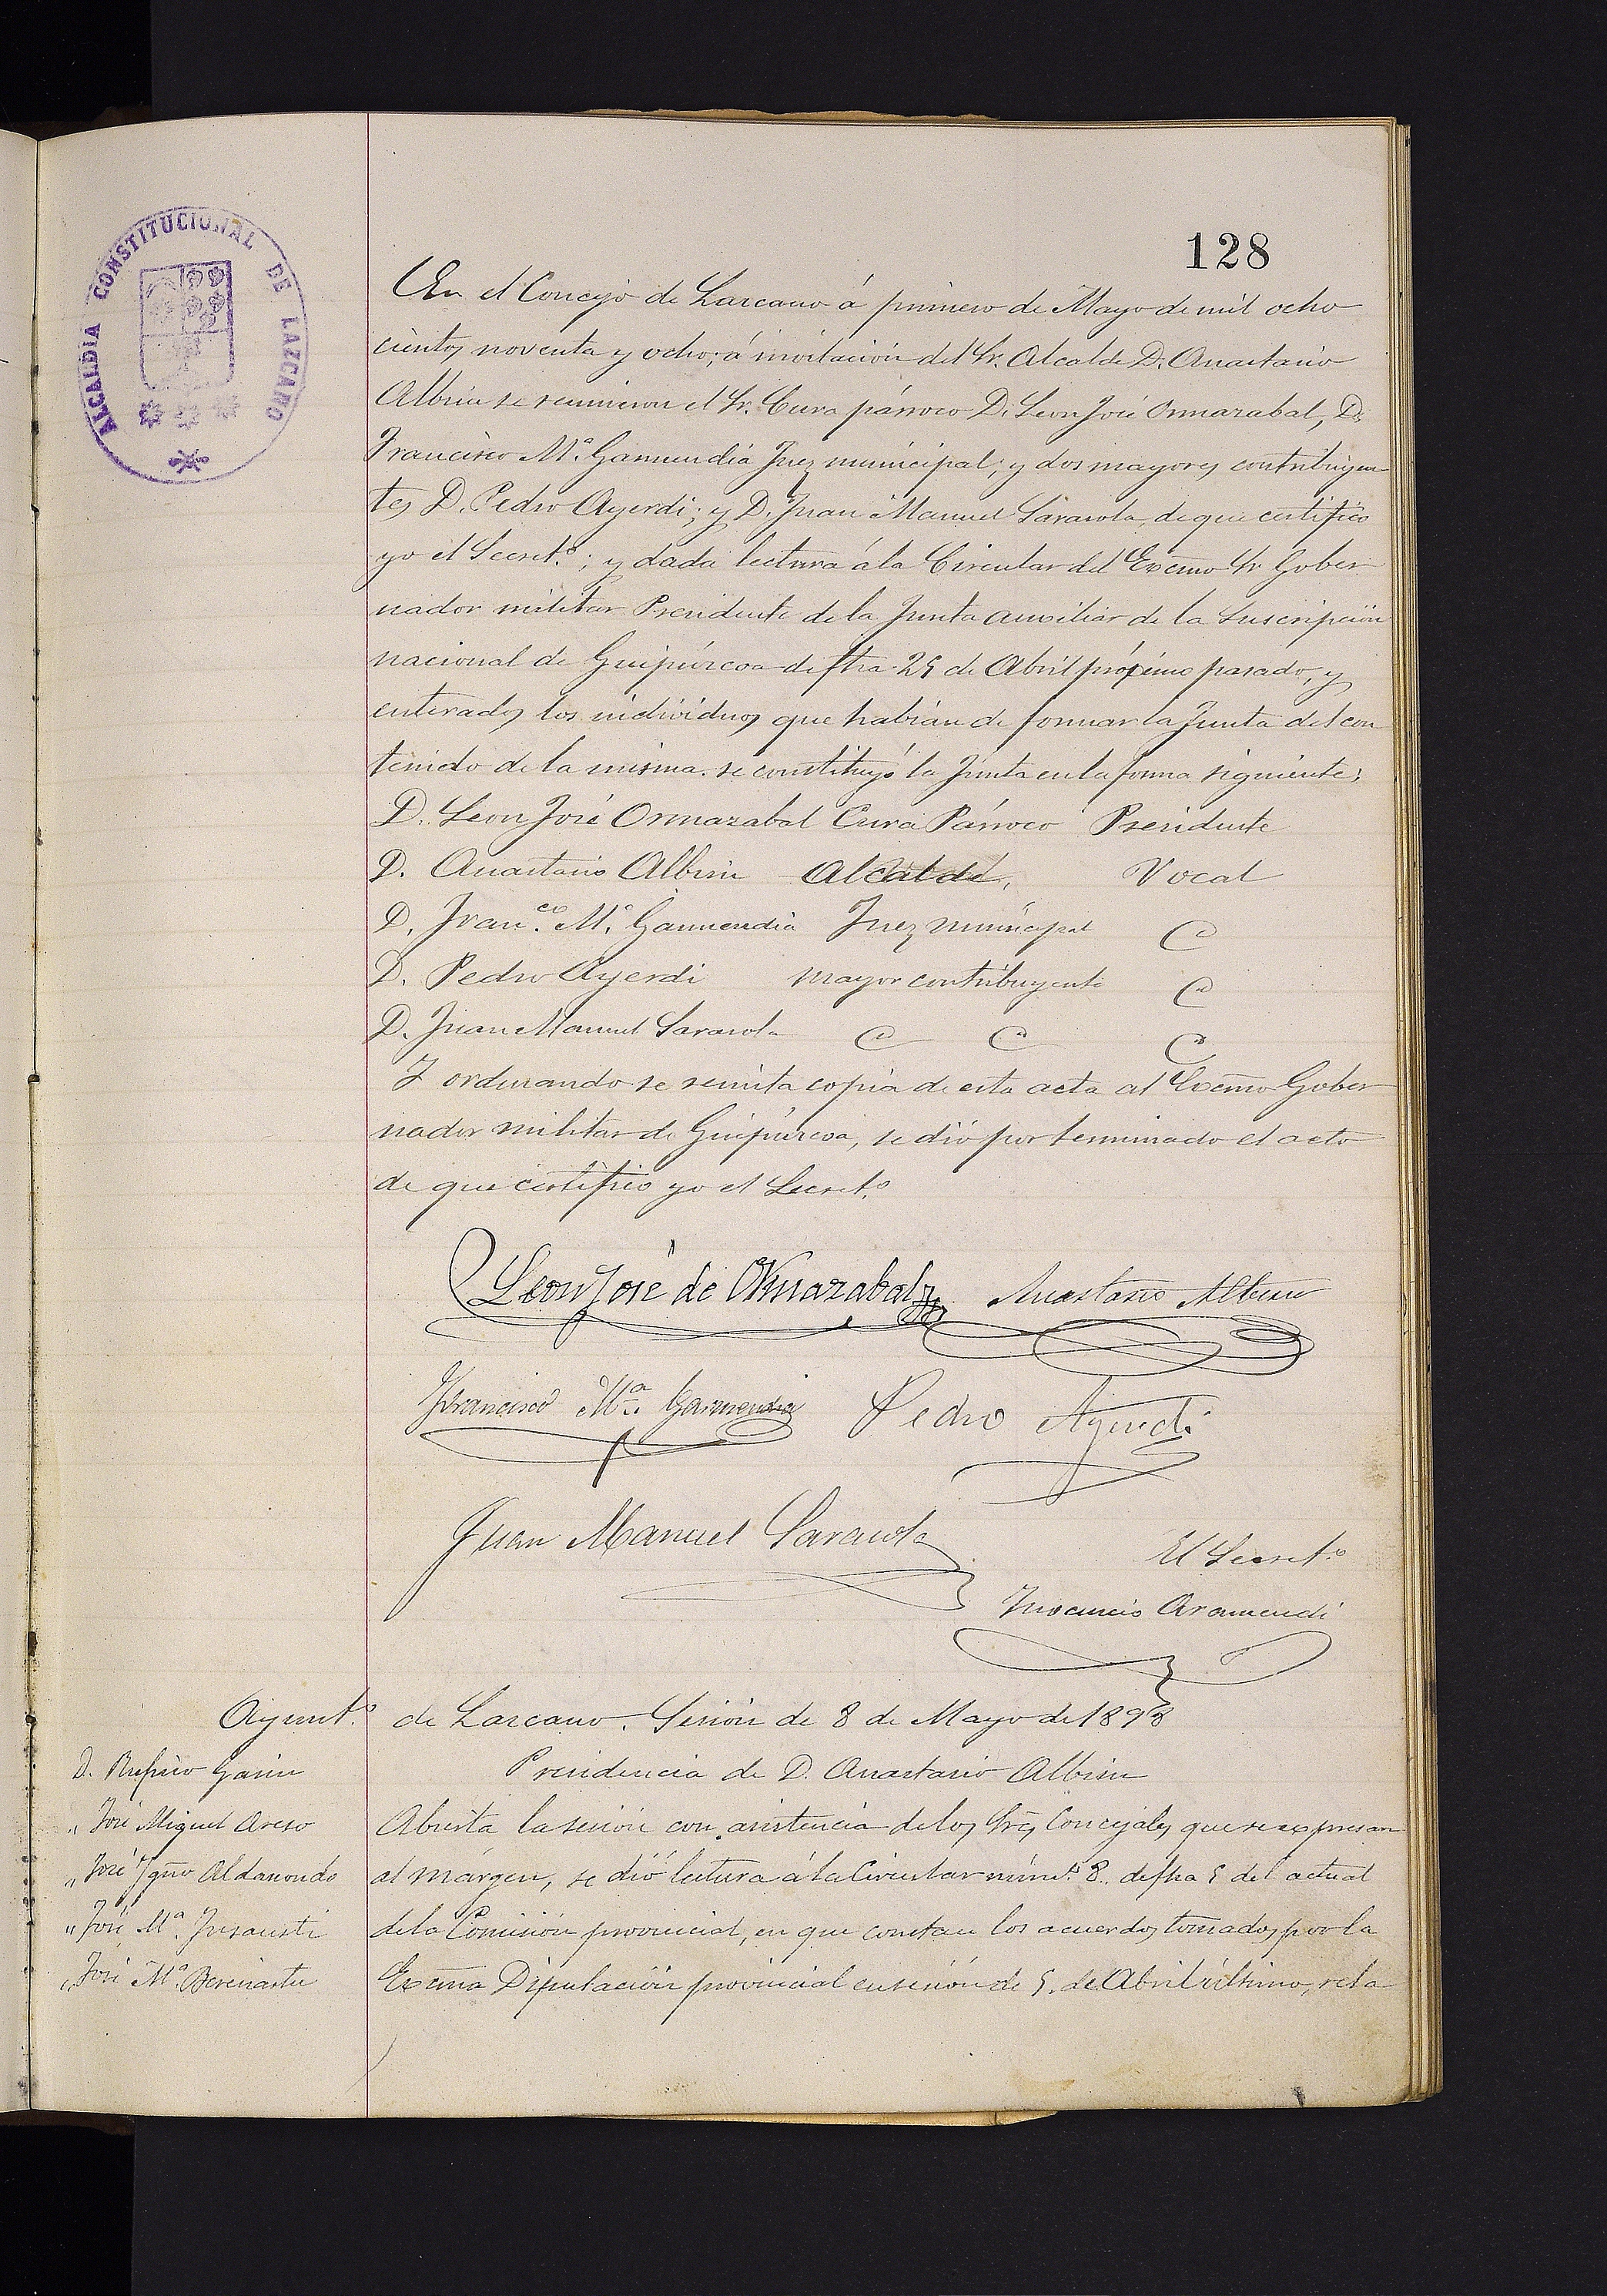 ALCALDIA CONSTITUCIONAL DE LAZCANO
128
En el Concejo de Lazcano á primero de Mayo de mil ocho
cientos noventa y ocho; á invitación del Sr. Alcalde D. Anastasio
Albisu se reunieron el Sr. Cura párroco D. Leon José Ormazabal, D.
Francisco Mª. Garmendia Juez municipal; y dos mayores contribuyen
tes D. Pedro Ayerdi; y D. Juan Manuel Sarasola, de que certifico
yo el Secretº.; y dada lectura á la Circular del Excmo Sr Gober
nador militar Presidente de la Junta auxiliar de la Suscripción
nacional de Guipúzcoa de fha 25 de Abril próximo pasado, y
enterados los individuos que habían de formar la Junta del con
tenido de la misma. se constituyó la Junta en la forma siguiente:
D. Leon José Ormazabal Cura Párroco Presidente
D. Anastasio Albisu Alcalde, Vocal
D. Franco. Mª. Garmendia Juez municipal
D. Pedro Ayerdi mayor contribuyente
D. Juan Manuel Sarasola
Y ordenando se remita copia de esta acta al Excmo Gober
nador militar de Guipúzcoa, se dió por terminado el acto
de que certifico yo el Secretº
Leon José de Ormazabal Anastasio Albisu
Francisco Mª. Garmendia Pedro Ayerdi
Juan Manuel Sarasola
El Secretº
Inocencio Aramendi
Ayuntº. de Lazcano. Sesión de 8 de Mayo de 1898
Presidencia de D. Anastasio Albisu
D. Rufino Garin
" José Miguel Areso
" José Ygno Aldanondo
" José Mª. Insausti
" José Mª. Bereciartu
Abierta la sesión con asistencia de los Sres Concejales que se expresan
al márgen, se dió lectura á la Circular núm. 8. de fha 5 del actual
de la Comisión provincial, en que constan los acuerdos tomados por la
Excma Diputación provincial en sesión de 5. de Abril último, rela